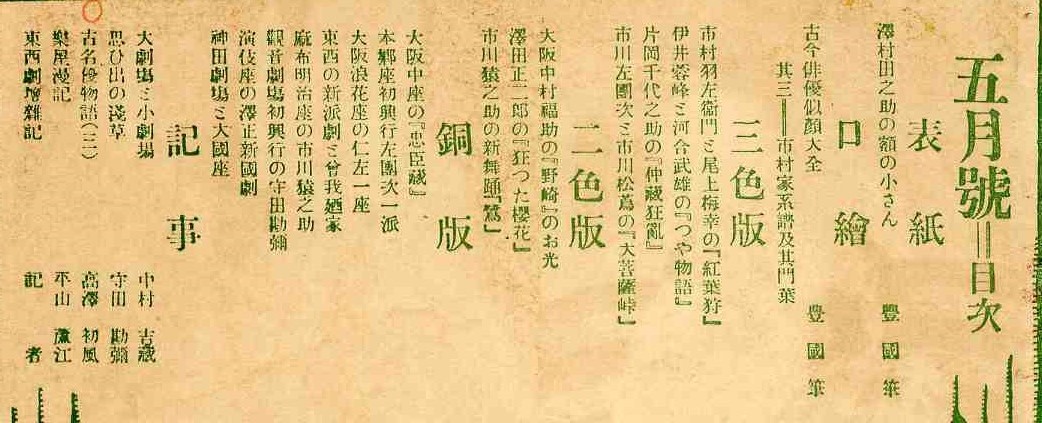 五月號＝目次
表紙
澤村田之助の額の小さん　豐國筆
口繪
古今俳優似顏大全　豐國筆
其三＝市村家系譜及其門葉
三色版
市村羽左衞門と尾上梅幸の『紅葉狩』
伊井蓉峰と河合武雄の『つや物語』
片岡千代之助の『仲藏狂亂』
市川左團次と市川松蔦の『大菩薩峠』
二色版
大阪中村福助の『野崎』のお光
澤田正二郎の『狂つた櫻花』
市川猿之助の新舞踊『鷲』
銅版
大阪中座の『忠臣藏』
本鄕座初興行左團次一派
大阪浪花座の仁左一座
東西の新派劇と曾我廼家
麻布明治座の市川猿之助
觀音劇場初興行の守田勘彌
演伎座の澤正新國劇
神田劇場と大國座
記事
大劇塲と小劇塲　中村吉藏
思ひ出の淺草　守田勘彌
古名優物語（三）　高澤初風
樂屋漫記　平山蘆江
東西劇壇雜記　記者